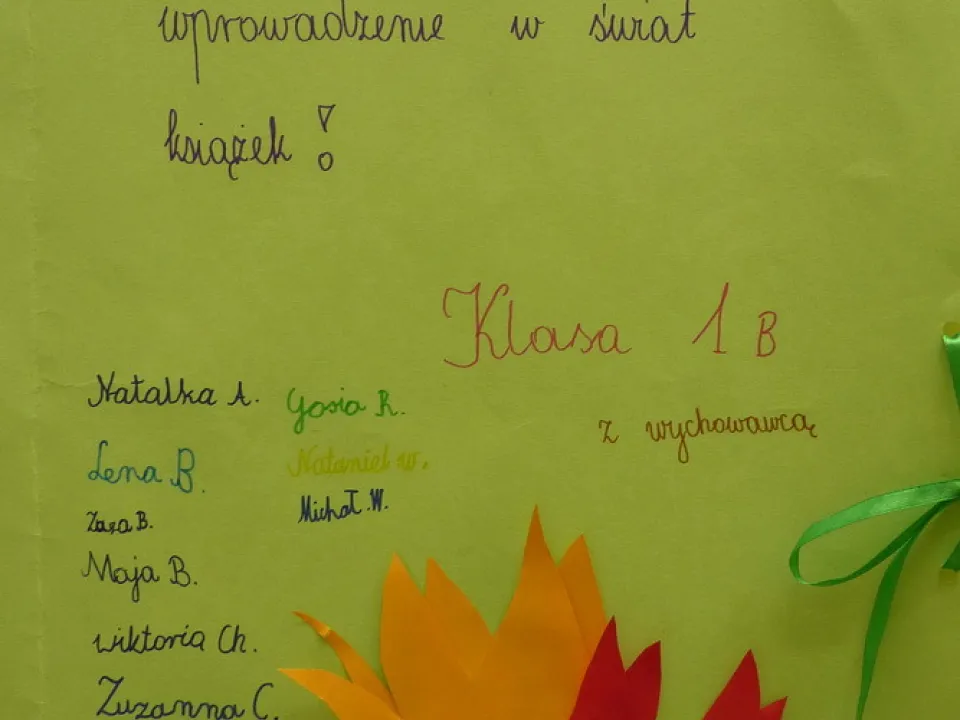 wprowadzenie w świat
książek!
Klasa 1 B
z wychowawcą
Natalka A.
Lena B.
Zuza B.
Maja B.
wiktoria Ch.
Zuzanna C.
Gosia R.
Nataniel w.
Michał.W.